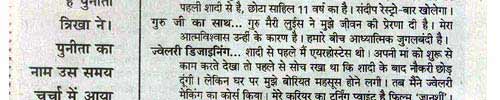 पहली शादी से है, छोटा साहिल 11 वर्ष का है। संदीप रेस्ट्रो-बार खोलेगा।
गुरु जी का साथ... गुरु मैरी लुईस ने मुझे जीवन की प्रेरणा दी है। मेरा
आत्मविश्वास उन्हीं के कारण है। हमारे बीच आध्यात्मिक जुगलबंदी है।
ज्वेलरी डिजाइनिंग... शादी से पहले मैं एयरहोस्टेस थी। अपनी मां को शुरू से
काम करते देखा तो पहले से सोच रखा था कि शादी के बाद नौकरी छोड़
दूंगी। लेकिन घर पर मुझे बोरियत महसूस होने लगी। तब मैंने ज्वेलरी
मेकिंग का कोर्स किया। मेरे करियर का टर्निंग प्वाइंट है फिल्म
है पुनीता
त्रिखा ने।
पुनीता का
नाम उस समय
चर्चा में आया